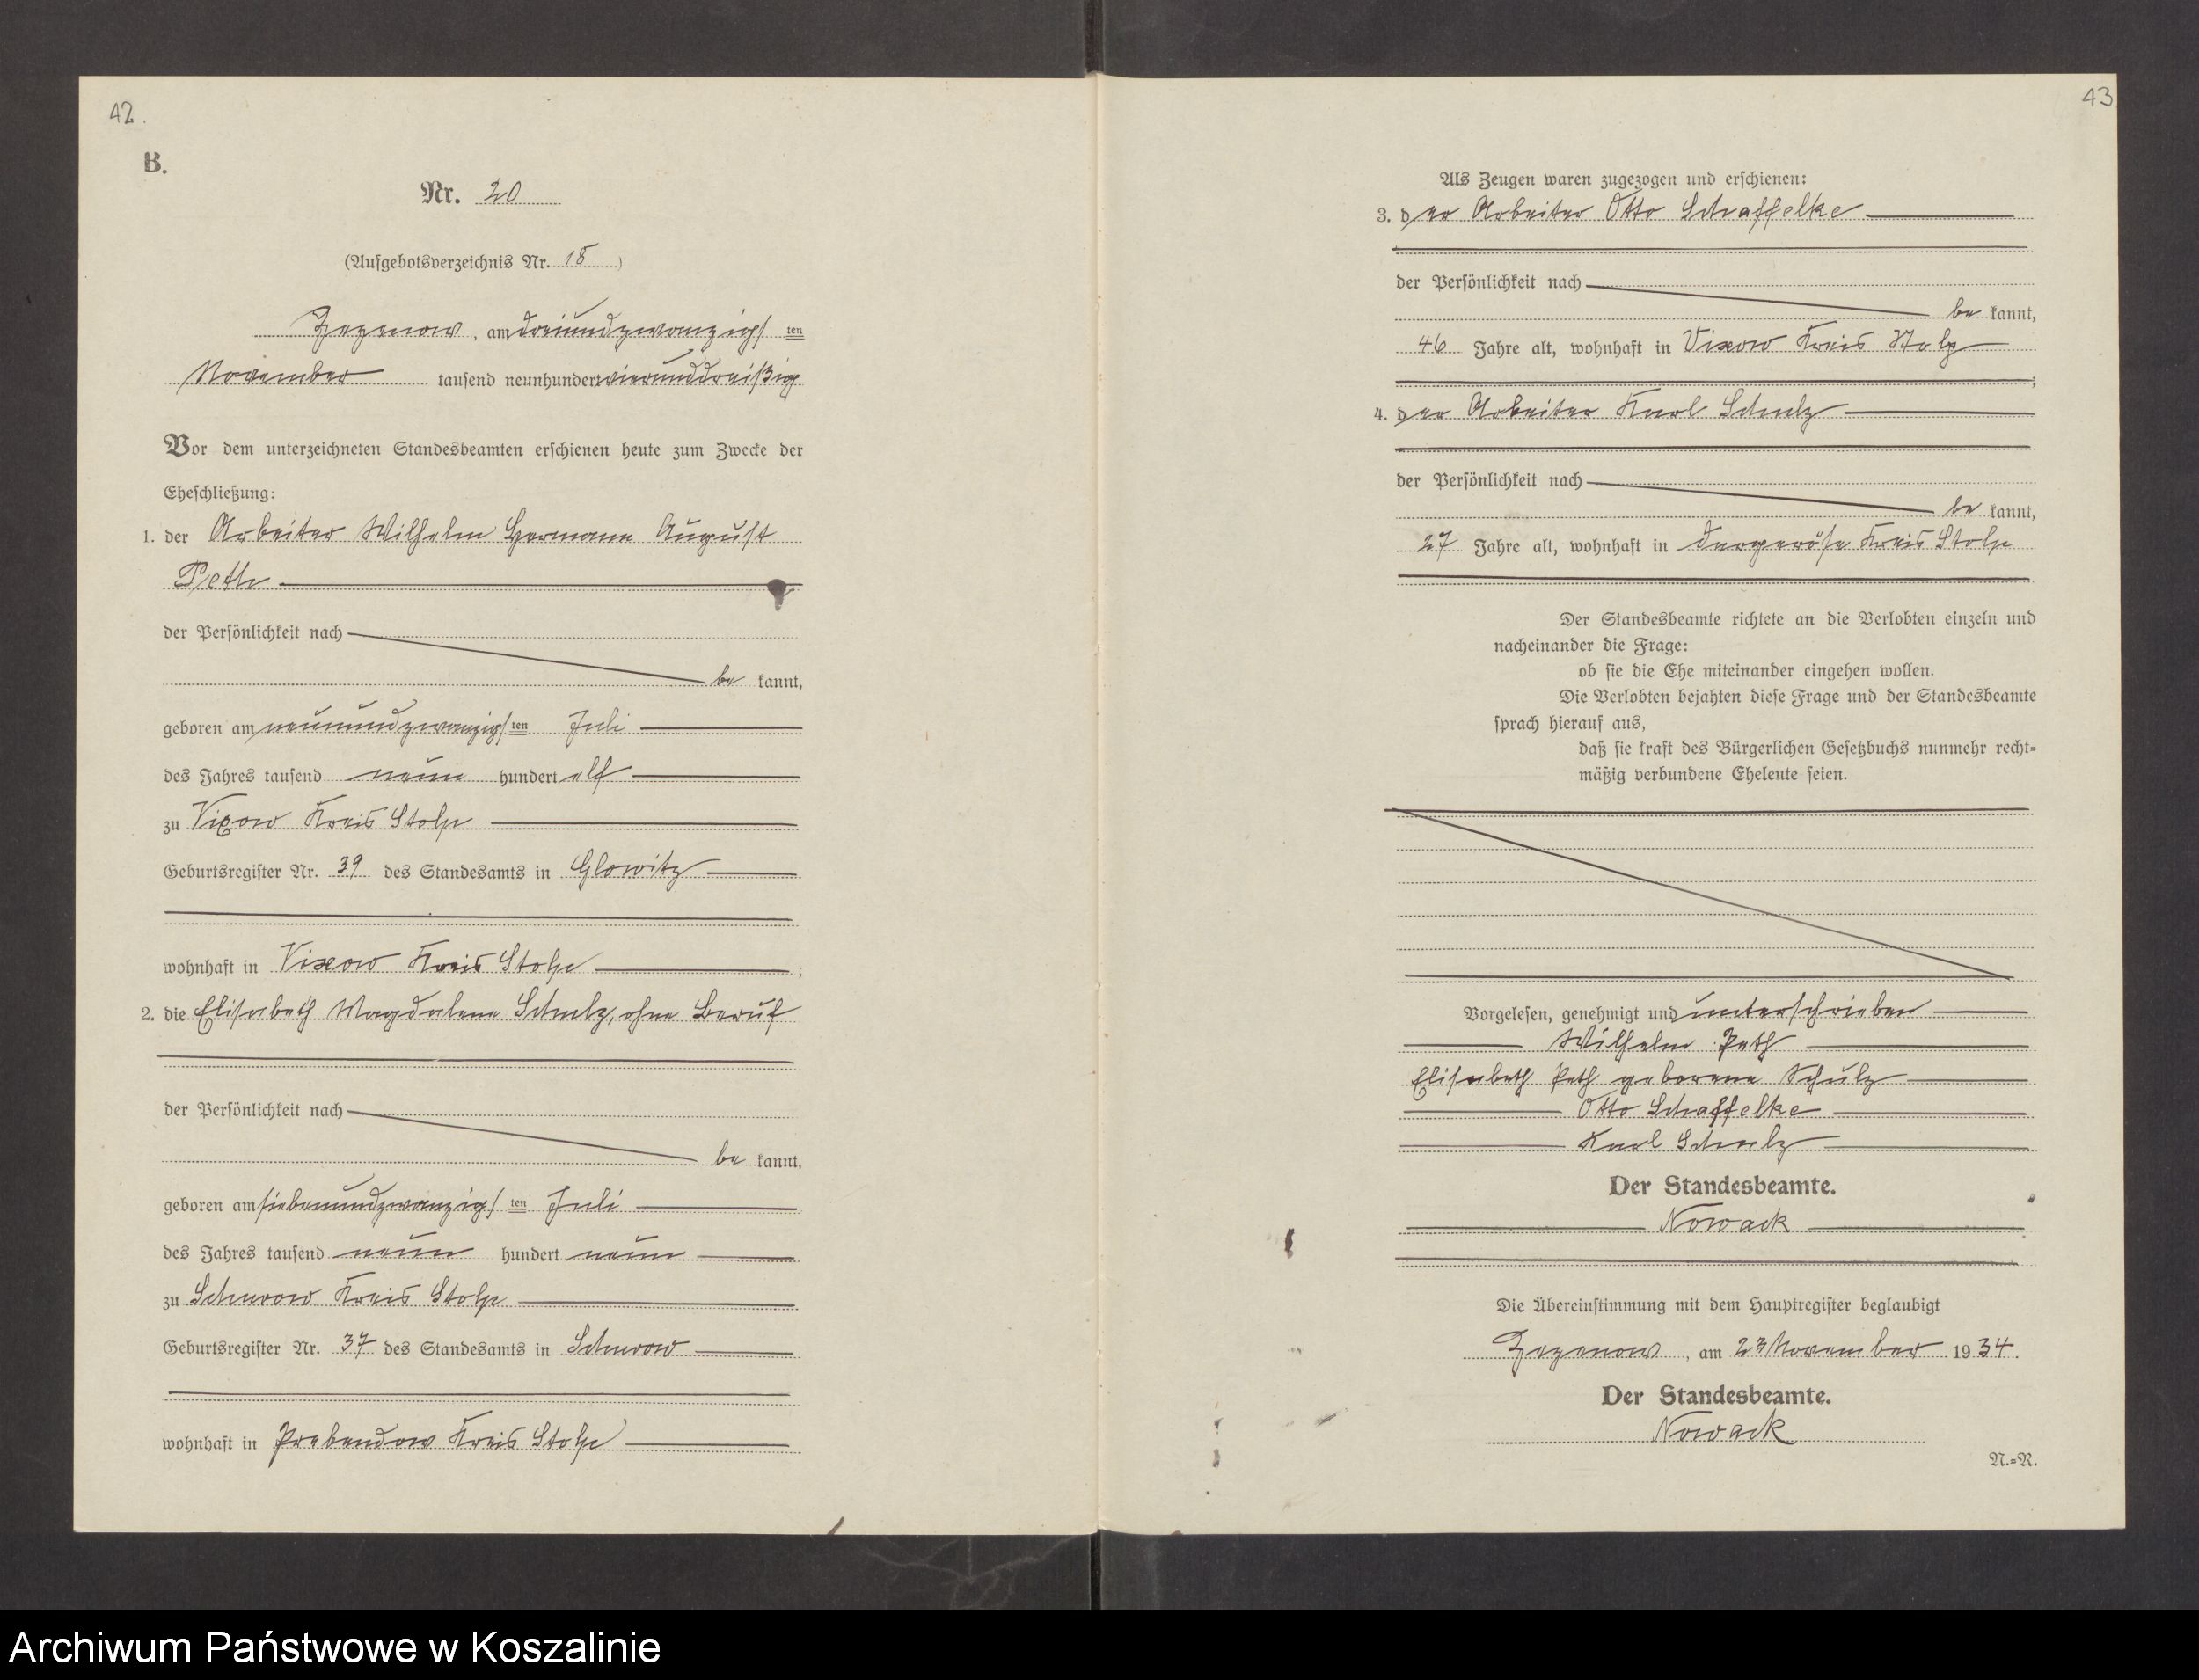 42.
B.
Nr. 20
(Aufgebotsverzeichnis Nr. 18)
Zezenow, am dreiundzwanzigsten
November tausend neunhundert vierunddreißig
Vor dem unterzeichneten Standesbeamten erschienen heute zum Zwecke der
Eheschließung:
1. der Arbeiter Wilhelm Hermann August
Peth
der Persönlichkeit nach
be kannt,
geboren am neunundzwanzigsten Juli
des Jahres tausend neun hundert elf
zu Vixow Kreis Stolp
Geburtsregister Nr. 39 des Standesamts in Glowitz
wohnhaft in Vixow Kreis Stolp;
2. die Elisabeth Magdalene Schulz, ohne Beruf
der Persönlichkeit nach
be kannt,
geboren am siebenundzwanzigsten Juli
des Jahres tausend neun hundert neun
zu Schurow Kreis Stolp
Geburtsregister Nr. 37 des Standesamts in Schurow
wohnhaft in Prebendow Kreis Stolp
43
Als Zeugen waren zugezogen und erschienen:
3. der Arbeiter Otto Schaffelke
der Persönlichkeit nach
be kannt,
46 Jahre alt, wohnhaft in Vixow Kreis Stolp
;
4. der Arbeiter Karl Schulz
der Persönlichkeit nach
be kannt,
27 Jahre alt, wohnhaft in Dargeröse Kreis Stolp
Der Standesbeamte richtete an die Verlobten einzeln und
nacheinander die Frage:
ob sie die Ehe miteinander eingehen wollen.
Die Verlobten bejahten diese Frage und der Standesbeamte
sprach hierauf aus,
daß sie kraft des Bürgerlichen Gesetzbuchs nunmehr recht=
mäßig verbundene Eheleute seien.
Vorgelesen, genehmigt und unterschrieben
Wilhelm Peth
Elisabeth Peth geborene Schulz
Otto Schaffelke
Karl Schulz
Der Standesbeamte.
Nowack
Die Übereinstimmung mit dem Hauptregister beglaubigt
Zezenow, am 23 November 1934.
Der Standesbeamte.
Nowack
N.=R.
Archiwum Państwowe w Koszalinie